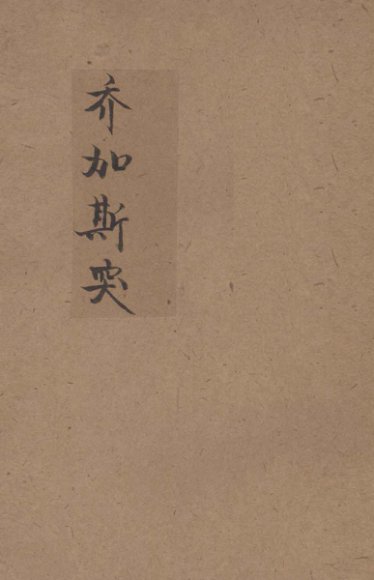 乔加斯突